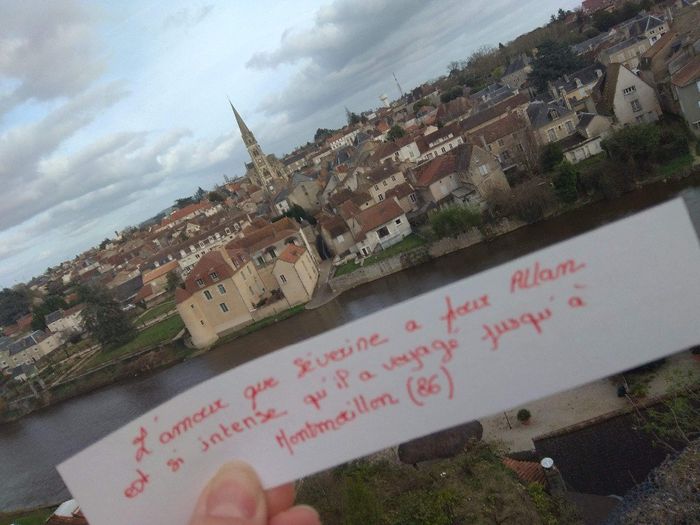 L'amour que Séverine a pour Allan
est si intense qu'il a voyagé jusqu'à
Montmorillon (86)